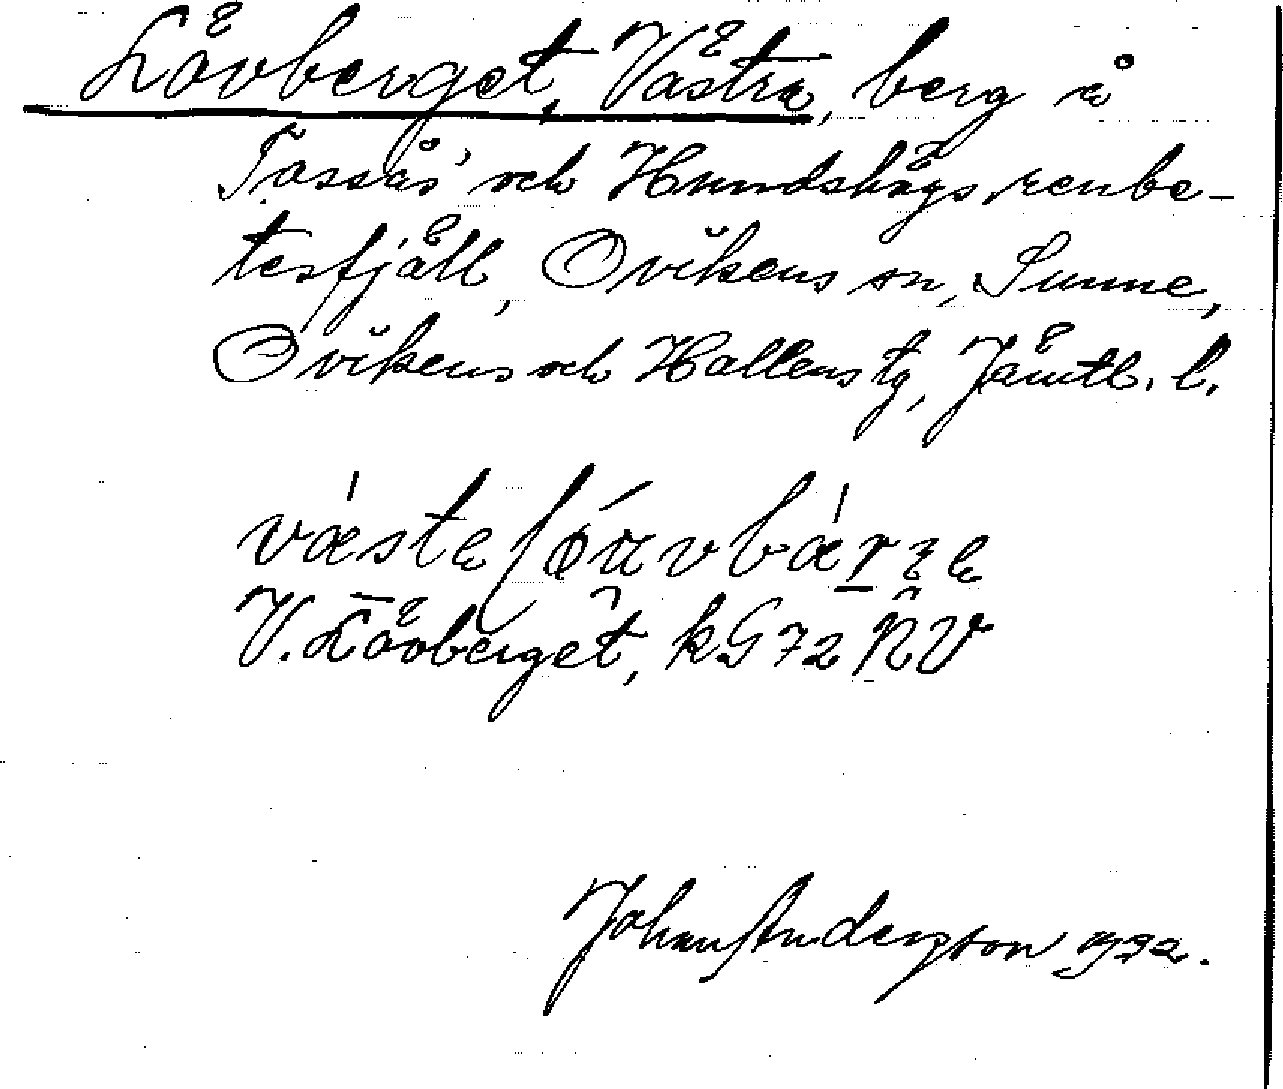 Lövberget, Västra, berg å
Tåssås' och Hundshögs renbe-
tesfjäll, Ovikens sn, Sunne,
Ovikens och Hallens tg, Jämtl. l.
V. Lövberget, kG 72 NV
Johan Anderson 1932.